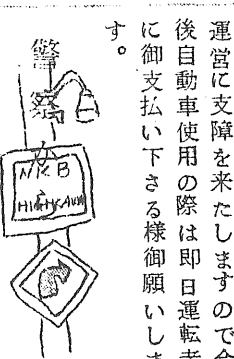 運営に支障を来たしますので
後自動車使用の際は即日運転者
に御支払い下さる様御願いしま
す。
警察
HIGHKAWA